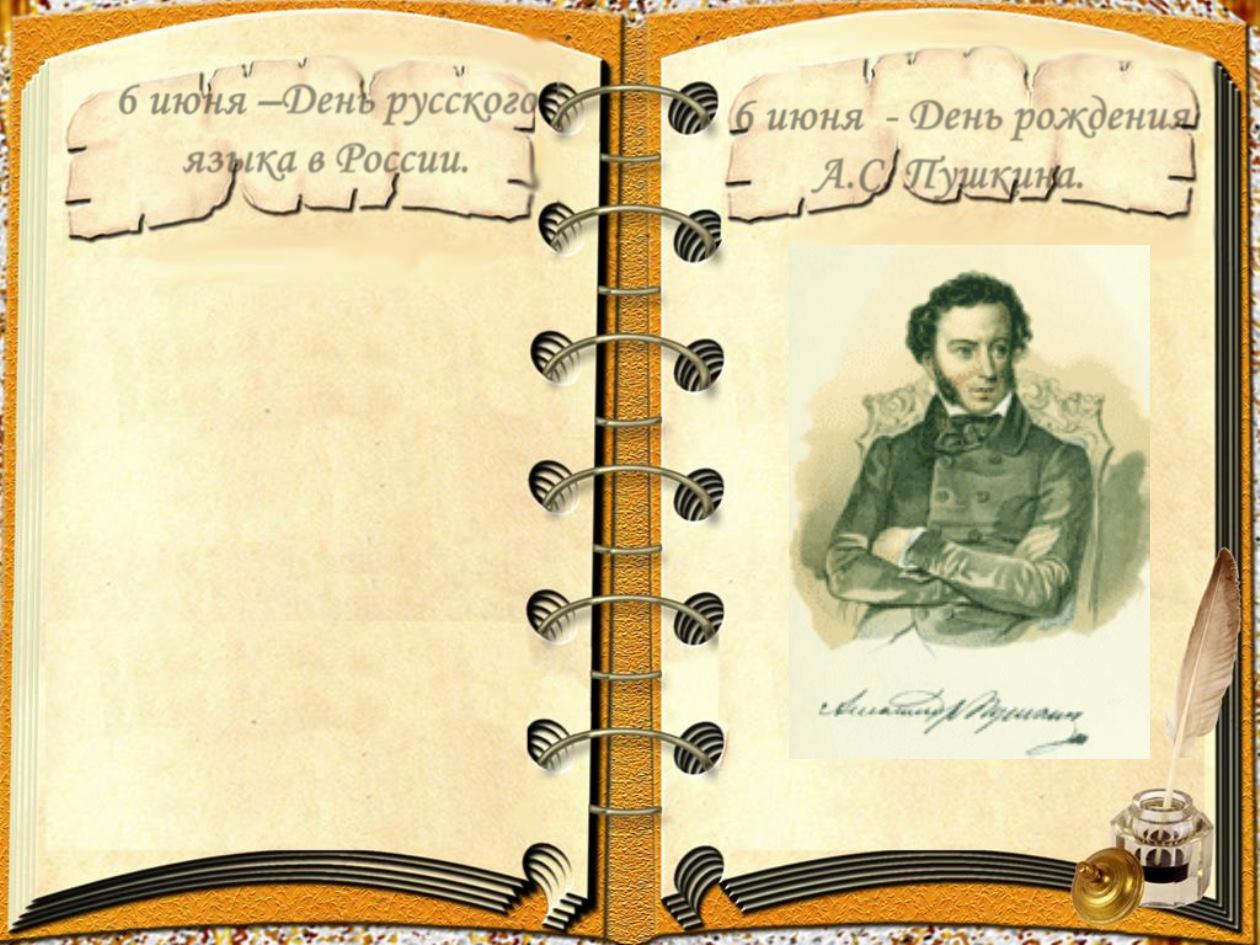 6 июня –День русского
языка в России.
6 июня - День рождения
А.С. Пушкина.
Александр Пушкин